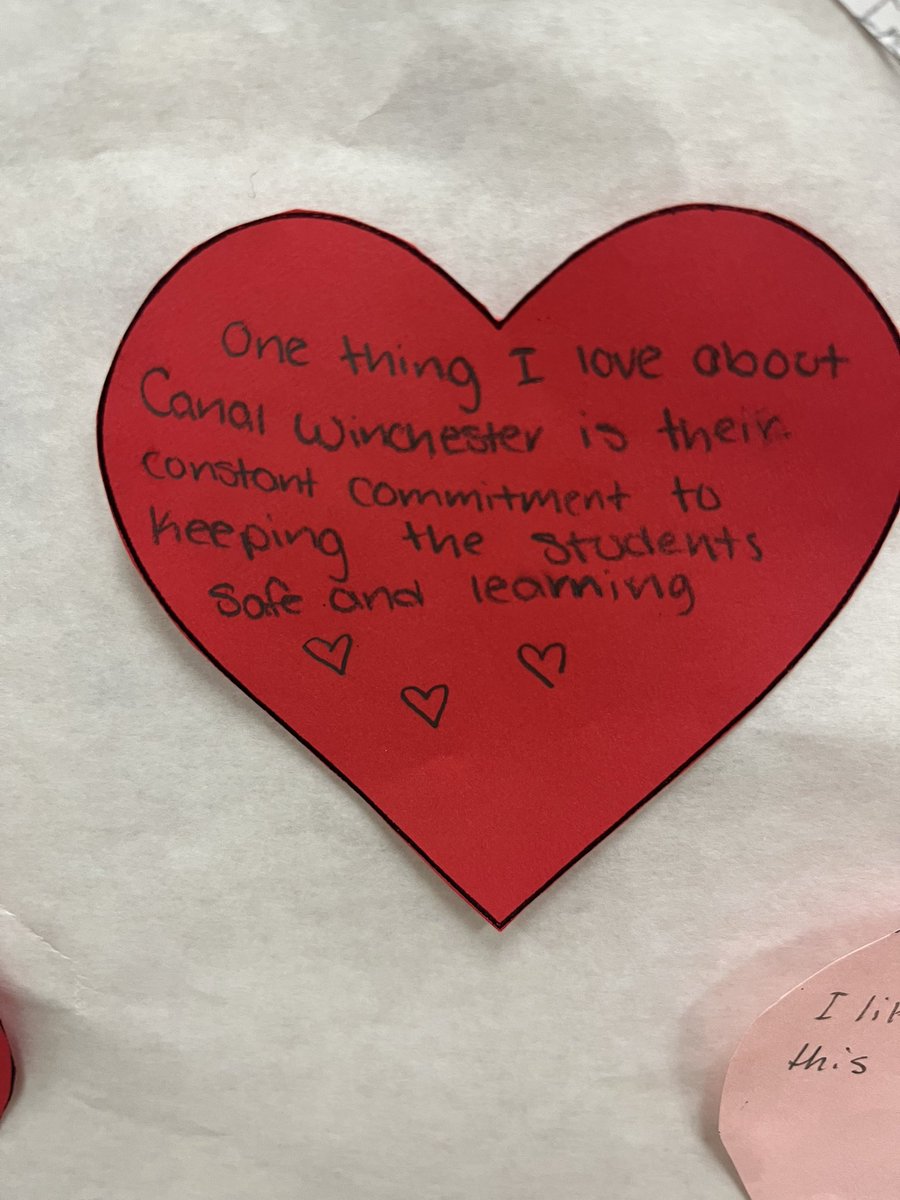 One thing I love about
Canal Winchester is their
constant commitment to
keeping the students
safe and learning
I
this